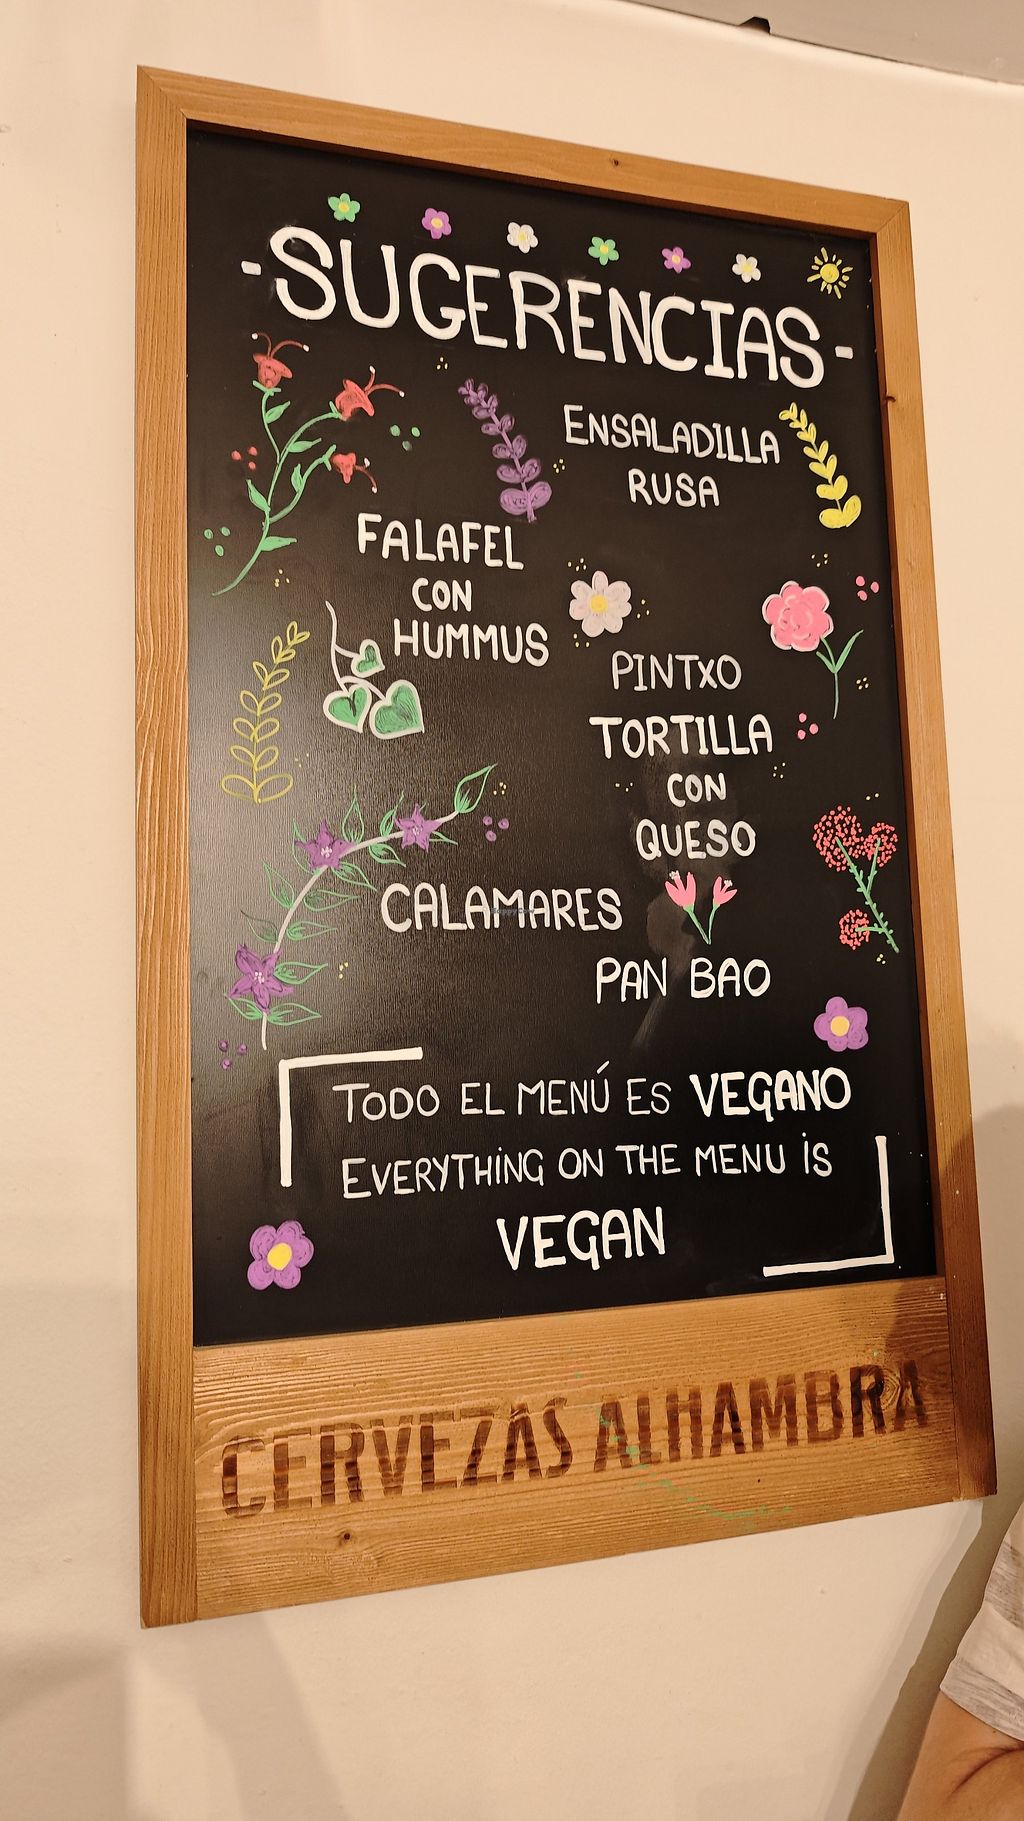 -SUGERENCIAS-
ENSALADILLA
RUSA
FALAFEL
CON
HUMMUS
PINTXO
TORTILLA
CON
QUESO
CALAMARES
PAN BAO
TODO EL MENÚ ES VEGANO
EVERYTHING ON THE MENU IS
VEGAN
CERVEZAS ALHAMBRA